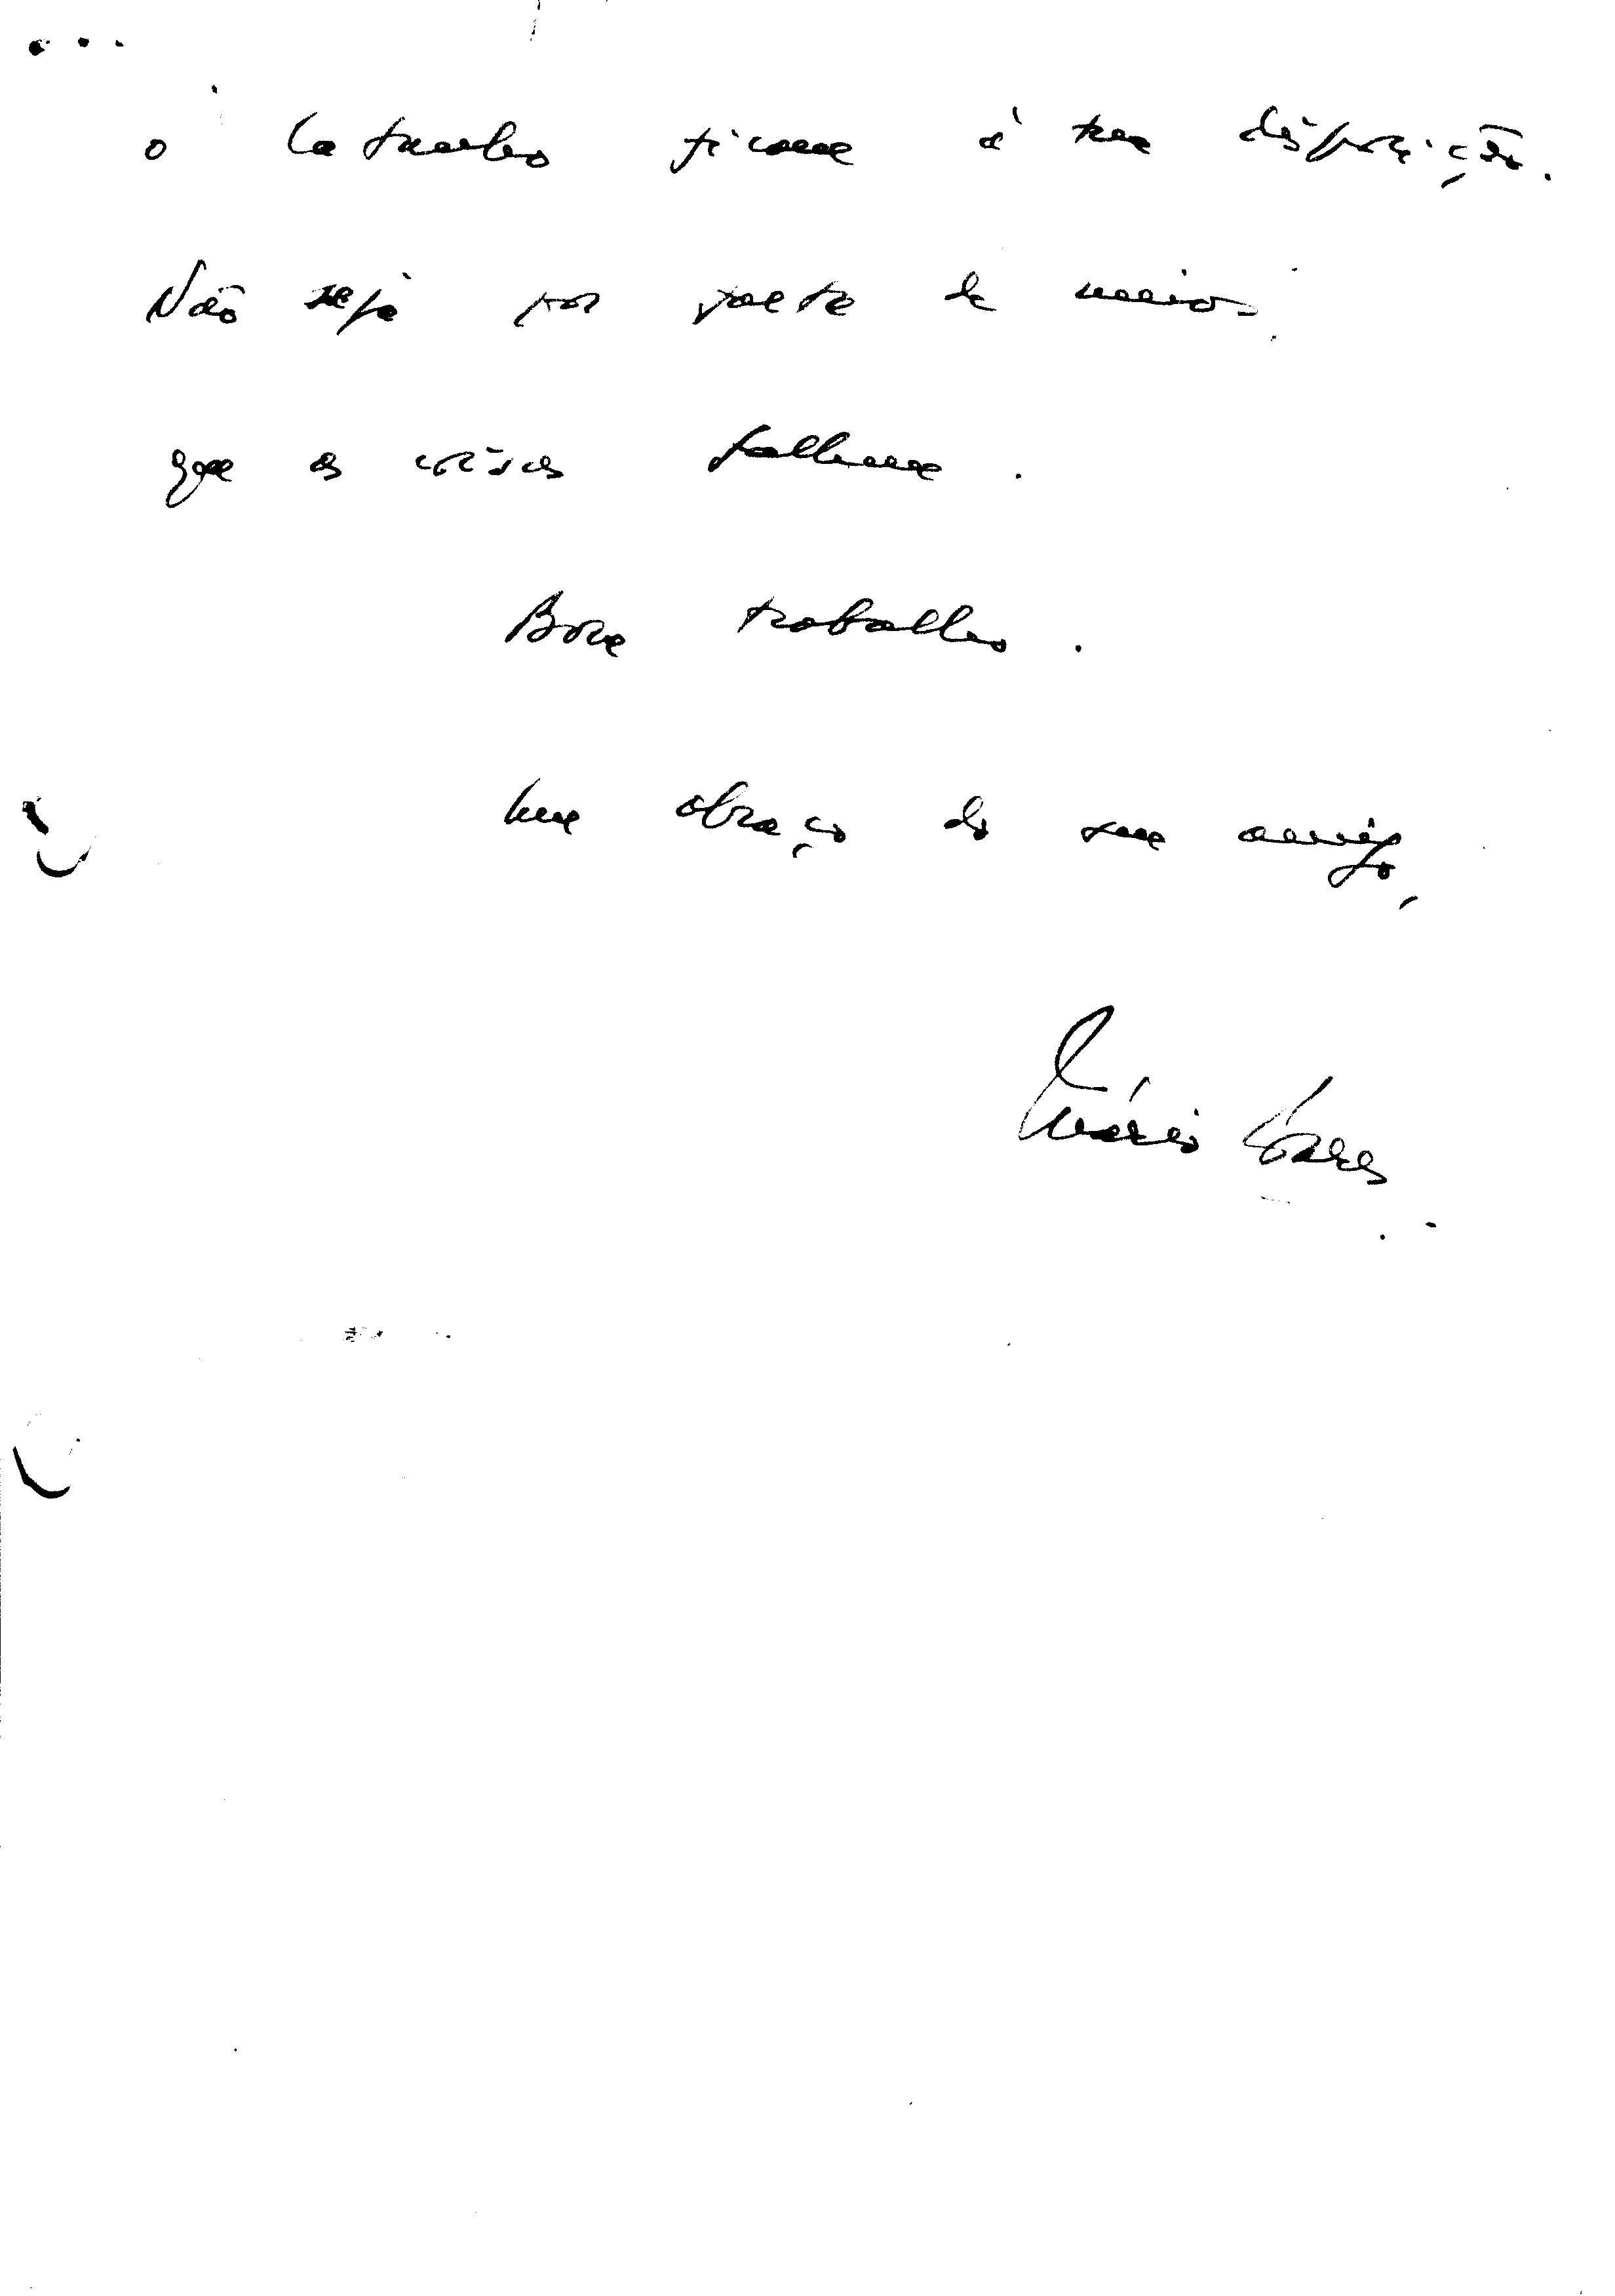 o Catanho ficam à tua disposição.
Não seja por falta de meios
que as coisas falhem.
Bom trabalho.
Um abraço do seu amigo,
Mário Soares